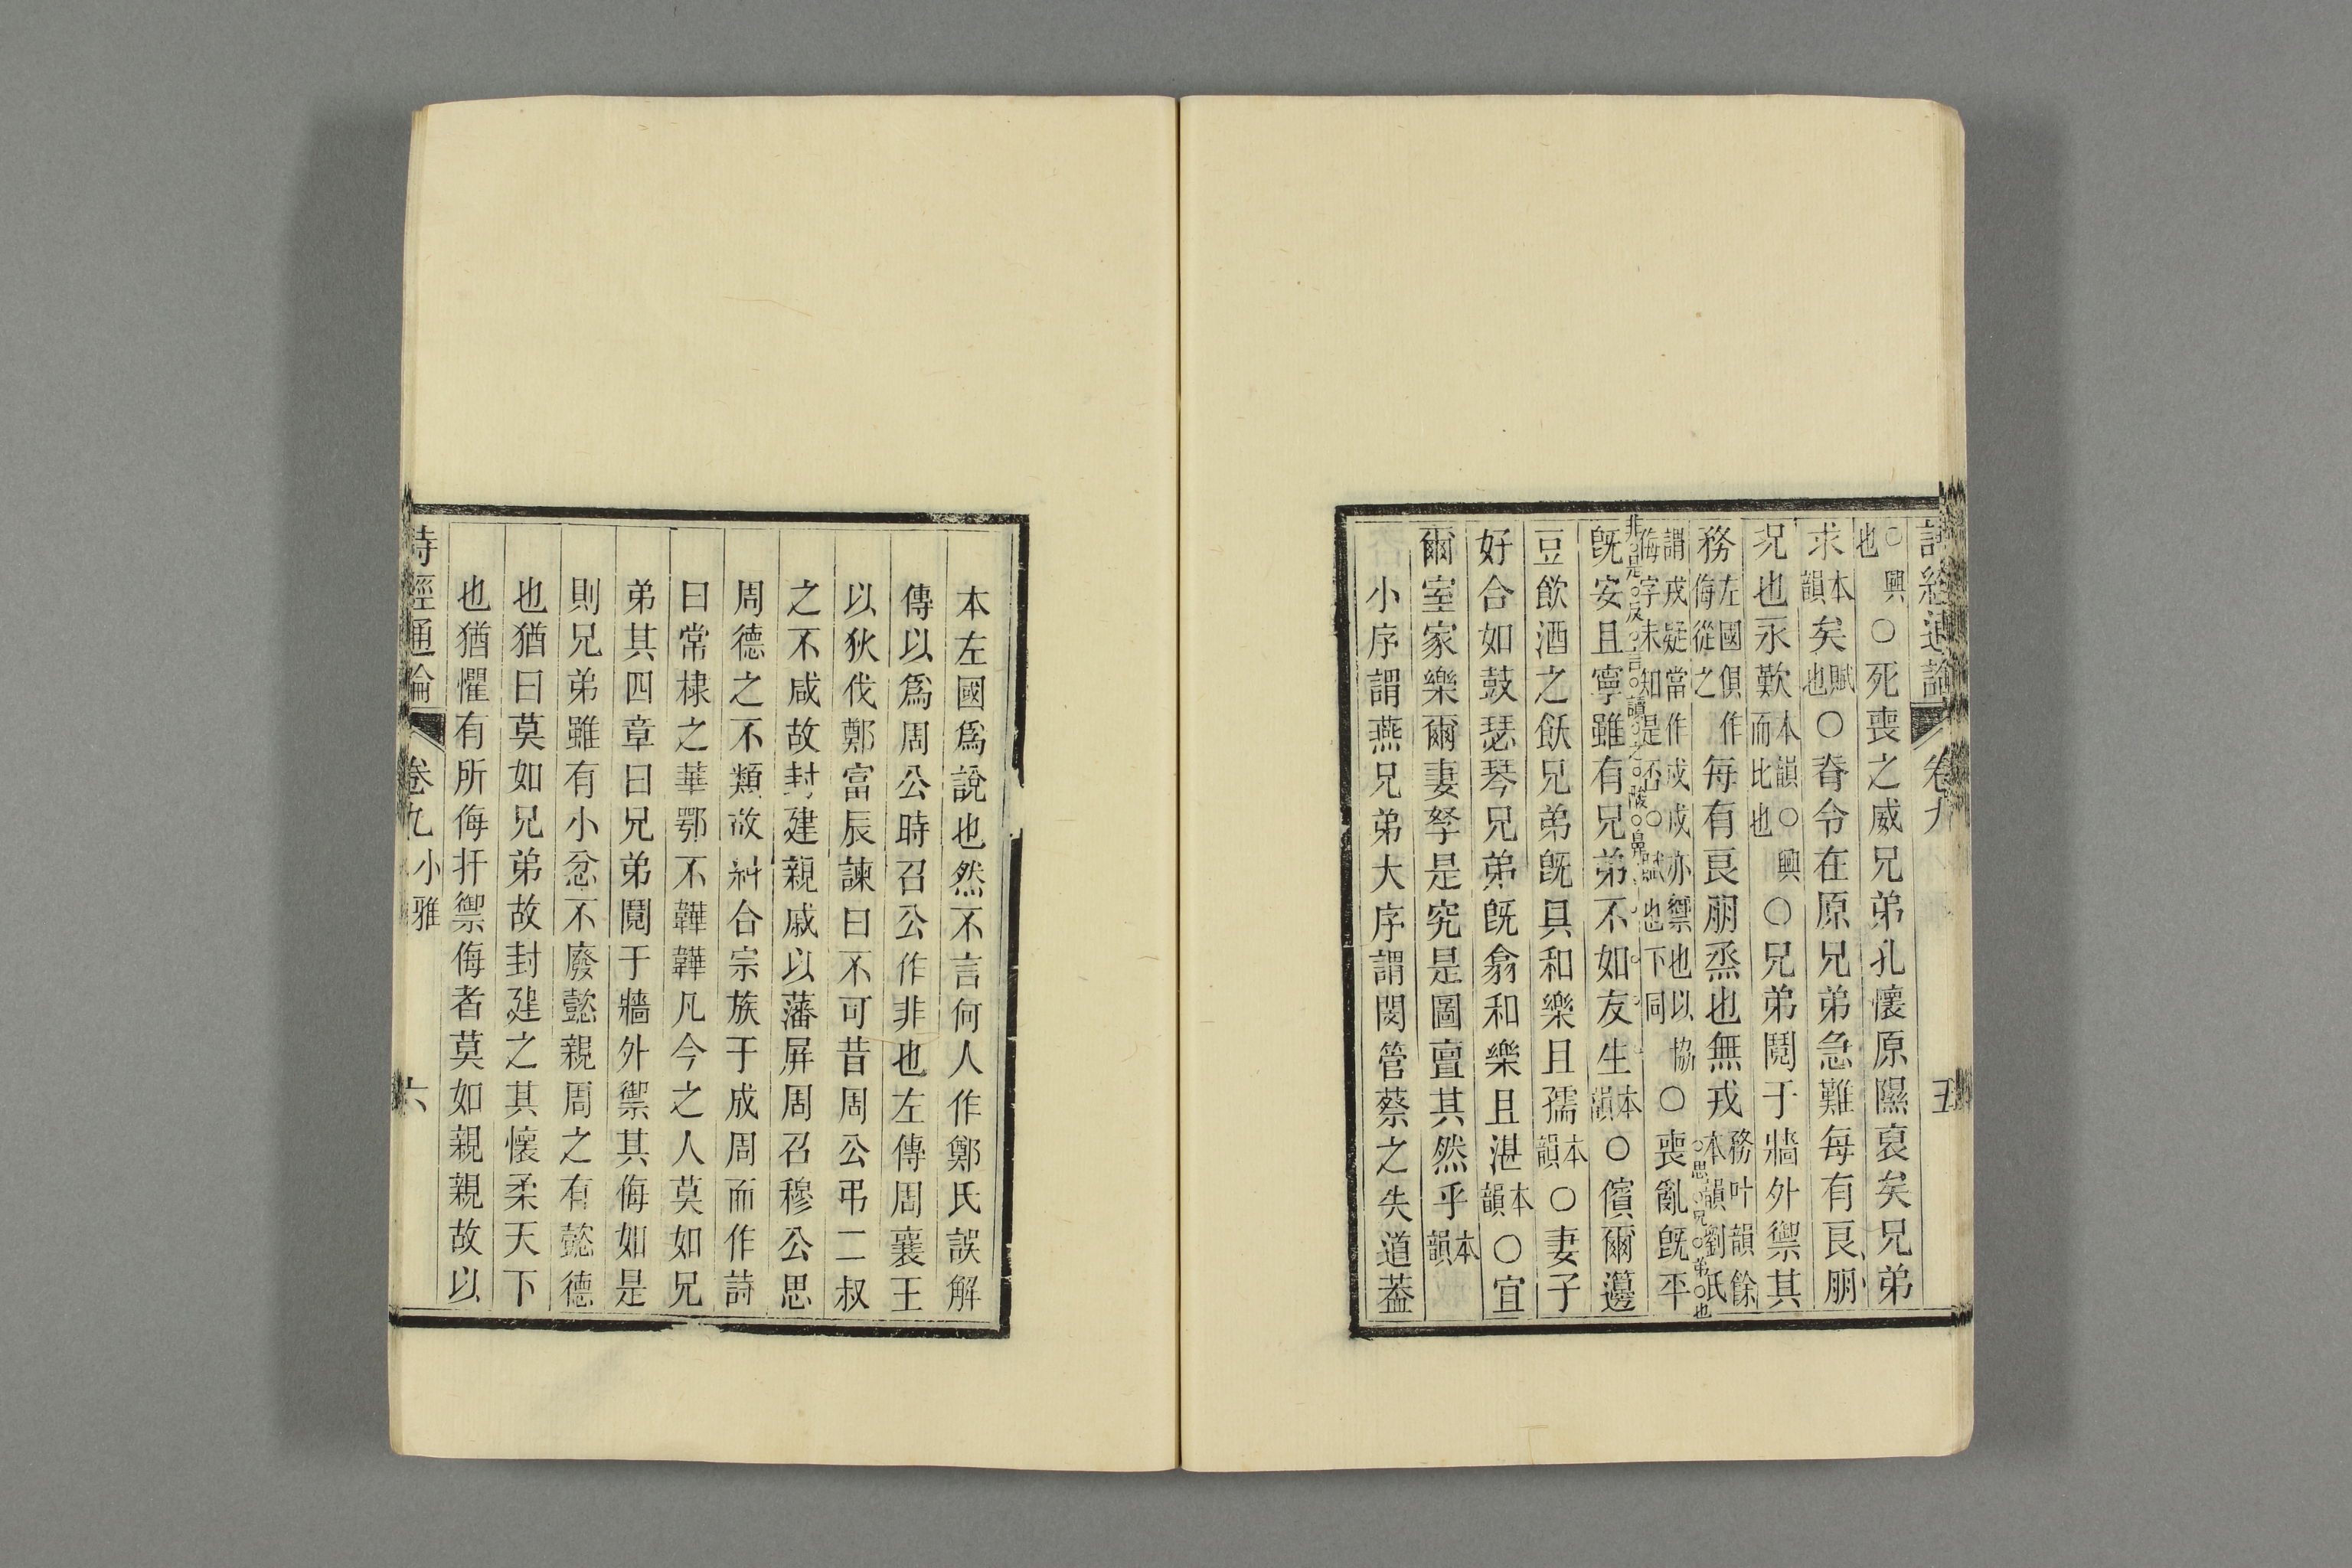 詩經通論 卷九 五
○興也○死喪之威兄弟孔懷原隰裒矣兄弟
求本韻矣賦也○脊令在原兄弟急難每有良朋
況也永歎本韻○興而比也○兄弟鬩于牆外禦其
務左國俱作侮從之每有良朋烝也無戎務叶韻餘本韻劉氏
思兄弟也
謂戎疑當作戍戍亦禦也以協侮字未知是否○賦也下同○喪亂旣平
非是反言讀之陂鼻
旣安且寧雖有兄弟不如友生本韻○儐爾籩
豆飲酒之飫兄弟旣具和樂且孺本韻○妻子
好合如鼓瑟琴兄弟旣翕和樂且湛本韻○宜
爾室家樂爾妻孥是究是圖亶其然乎本韻
小序謂燕兄弟大序謂閔管蔡之失道葢
本左國爲說也然不言何人作鄭氏誤解
傳以爲周公時召公作非也左傳周襄王
以狄伐鄭富辰諫曰不可昔周公弔二叔
之不咸故封建親戚以藩屏周召穆公思
周德之不類故糾合宗族于成周而作詩
曰常棣之華鄂不韡韡凡今之人莫如兄
弟其四章曰兄弟鬩于牆外禦其侮如是
則兄弟雖有小忿不廢懿親周之有懿德
也猶曰莫如兄弟故封建之其懷柔天下
也猶懼有所侮扞禦侮者莫如親親故以
詩經通論 卷九 小雅 六